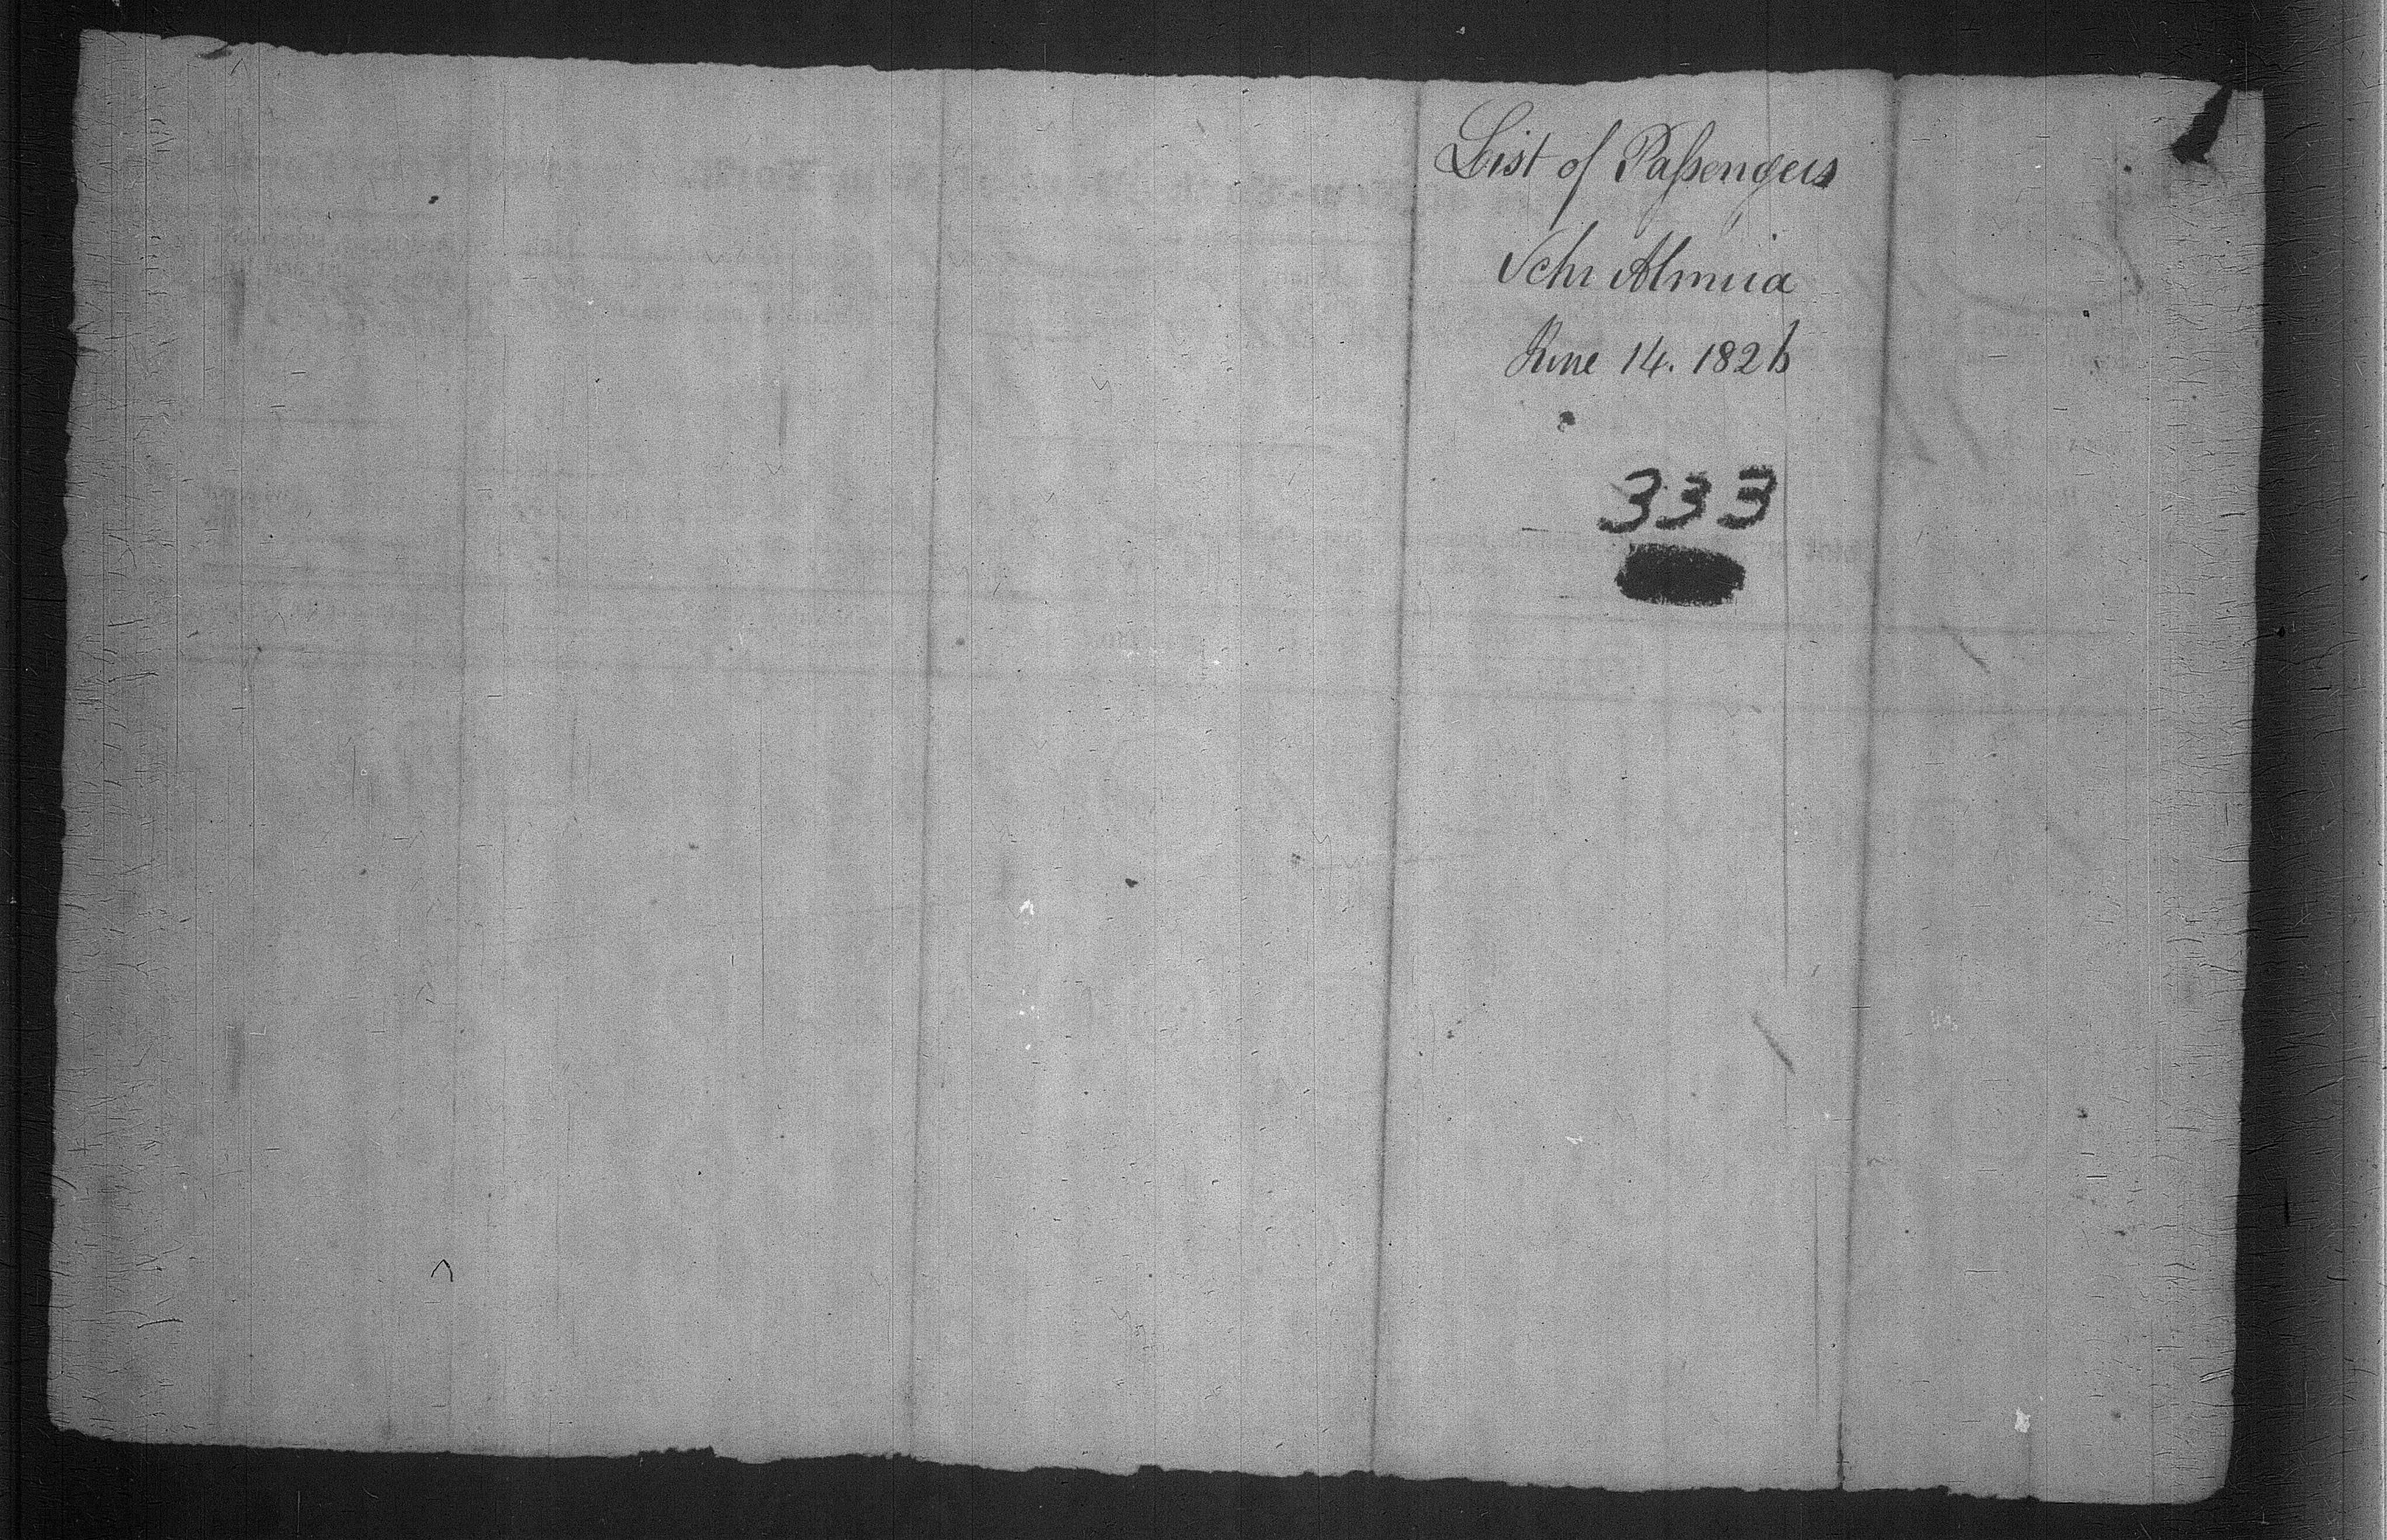 List of Passengers
Schr Almira
June 14. 1826
333